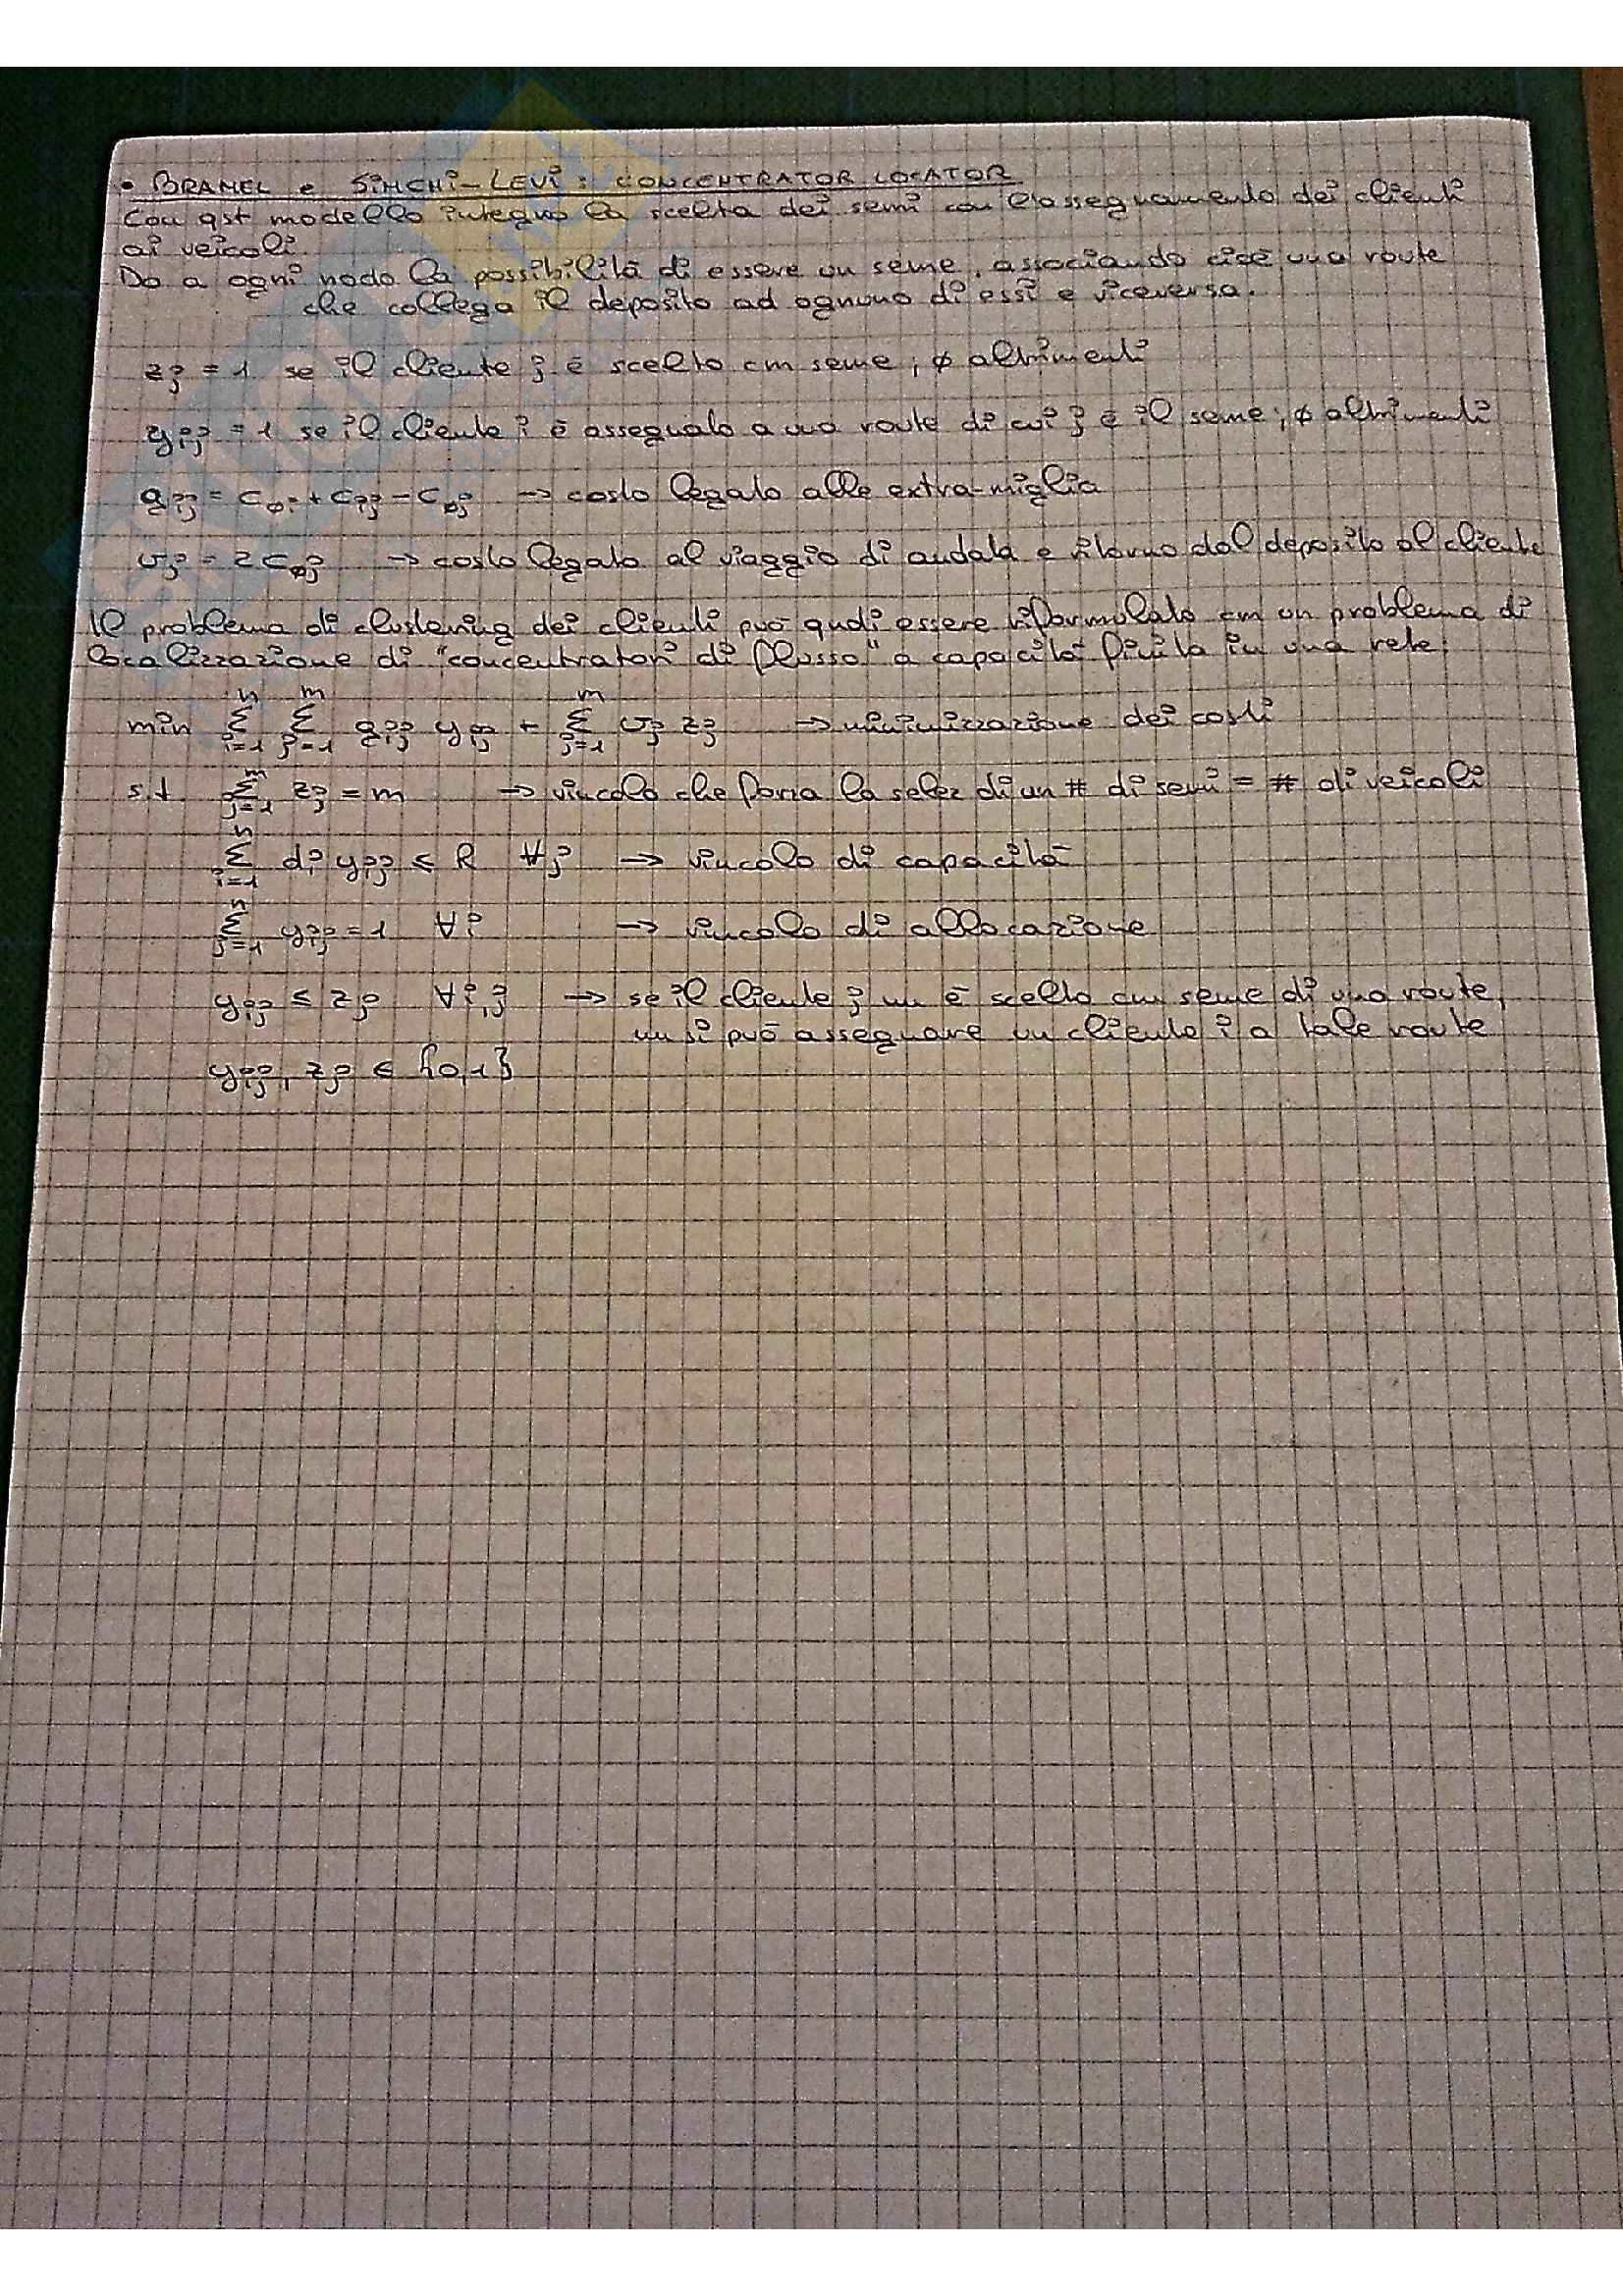 • BRAMEL e SIMCHI-LEVI: CONCENTRATOR LOCATOR
Con qst modello integro la scelta dei semi con l'assegnamento dei clienti
ai veicoli.
Do a ogni nodo la possibilità di essere un seme, associando cioè una route
che collega il deposito ad ognuno di essi e viceversa.
zj = 1 se il cliente j è scelto cm seme; ø altrimenti
yij = 1 se il cliente i è assegnato a una route di cui j è il seme; ø altrimenti
gij = cøi + cij - cøj → costo legato alle extra-miglia
vj = 2cøj → costo legato al viaggio di andata e ritorno dal deposito al cliente
Il problema di clustering dei clienti può qudi essere riformulato cm un problema di
localizzazione di "concentratori di flusso" a capacità finita in una rete:
min Σ(i=1..n) Σ(j=1..m) gij yij + Σ(j=1..m) vj zj → minimizzazione dei costi
s.t. Σ(j=1..n) zj = m → vincolo che forza la selez di un # di semi = # di veicoli
Σ(i=1..n) di yij ≤ R ∀j → vincolo di capacità
Σ(j=1..n) yij = 1 ∀i → vincolo di allocazione
yij ≤ zj ∀i,j → se il cliente j nn è scelto cm seme di una route,
nn si può assegnare un cliente i a tale route
yij, zj ∈ {0,1}